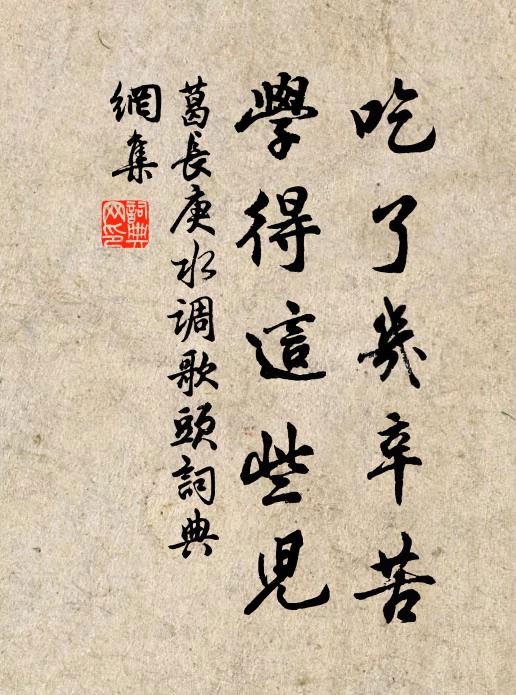 吃了幾辛苦
學得這些兒
葛長庚水调歌頭詞典
網集
詞典
网印